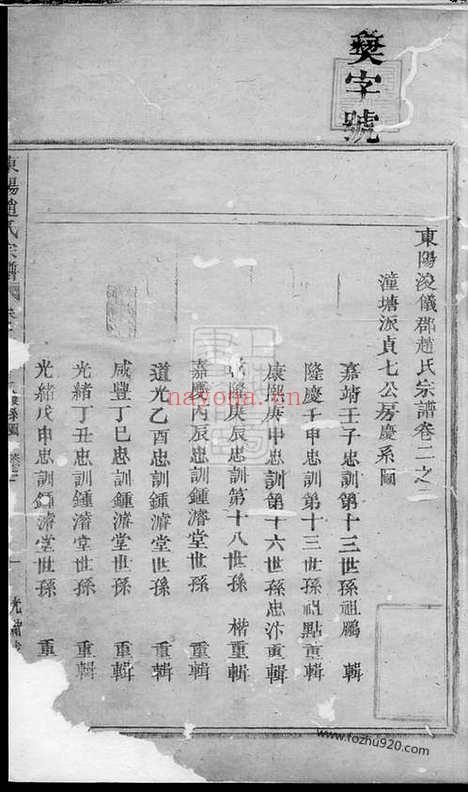 奭字號
東陽浚儀郡趙氏宗譜卷二之二
潼塘派貞七公房慶系圖
嘉靖壬子忠訓第十三世孫祖鵬 輯
隆慶壬申忠訓第十三世孫祖點重輯
康熙庚申忠訓第十六世孫忠汴重輯
隆庚辰忠訓第十八世孫 楷重輯
嘉慶丙辰忠訓鍾濬堂世孫 重輯
道光乙酉忠訓鍾濬堂世孫 重輯
咸豐丁巳忠訓鍾濬堂世孫 重輯
光緒丁丑忠訓鍾濬堂世孫 重輯
光緒戊申忠訓鍾濬堂世孫 重
東陽趙氏宗譜
nayona.cn
www.fozhu920.com